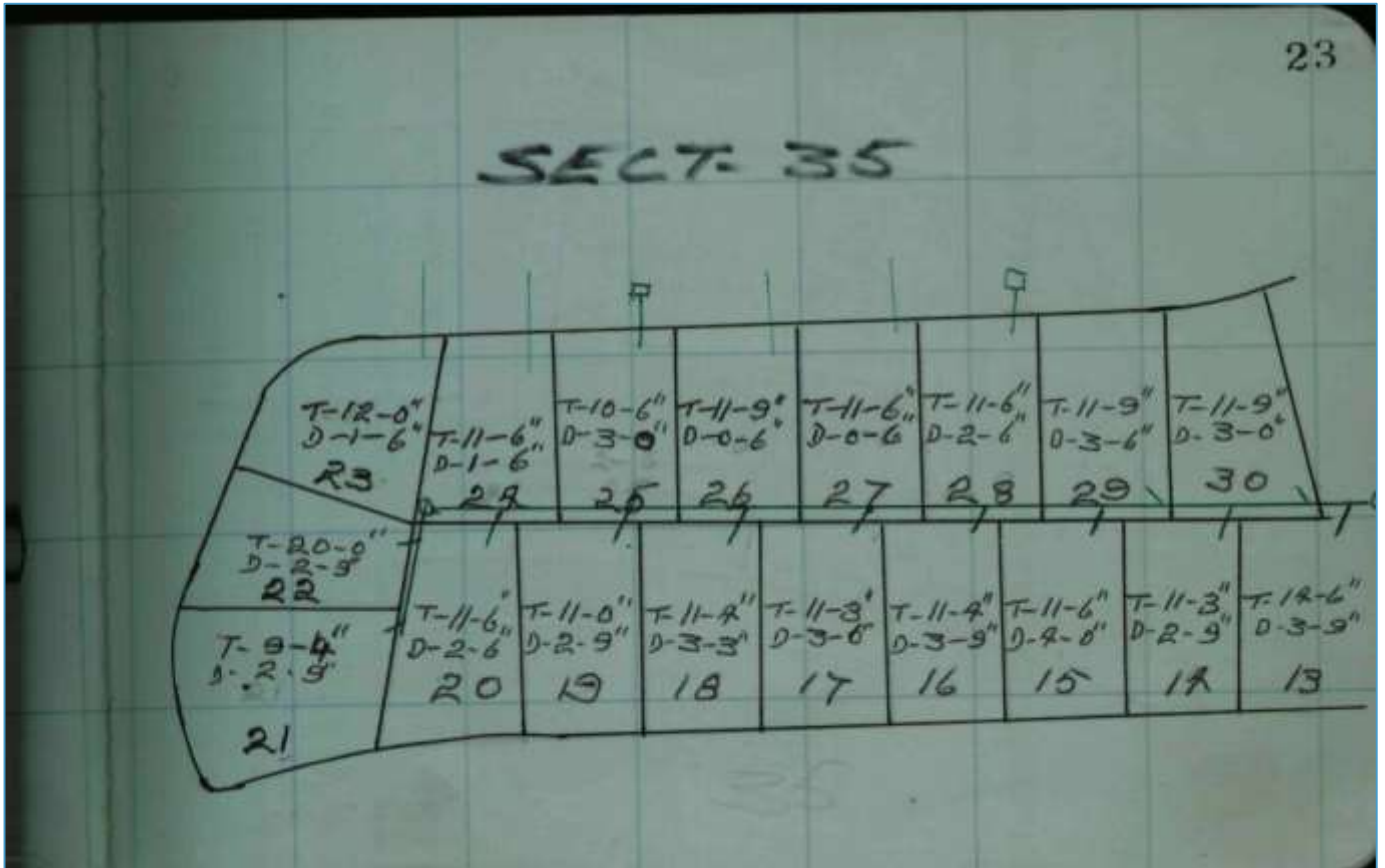 23
SECT- 35
T-12-0"
D-1-6"
23
T-11-6"
D-1-6"
24
T-10-6"
D-3-0"
25
T-11-9"
D-0-6"
26
T-11-6"
D-0-6"
27
T-11-6"
D-2-6"
28
T-11-9"
D-3-6"
29
T-11-9"
D-3-0"
30
T-20-0"
D-2-9"
22
T-9-4"
D-2-9"
21
T-11-6"
D-2-6"
20
T-11-0"
D-2-9"
19
T-11-4"
D-3-3"
18
T-11-3"
D-3-6"
17
T-11-4"
D-3-9"
16
T-11-6"
D-4-0"
15
T-11-3"
D-2-9"
14
T-14-6"
D-3-9"
13